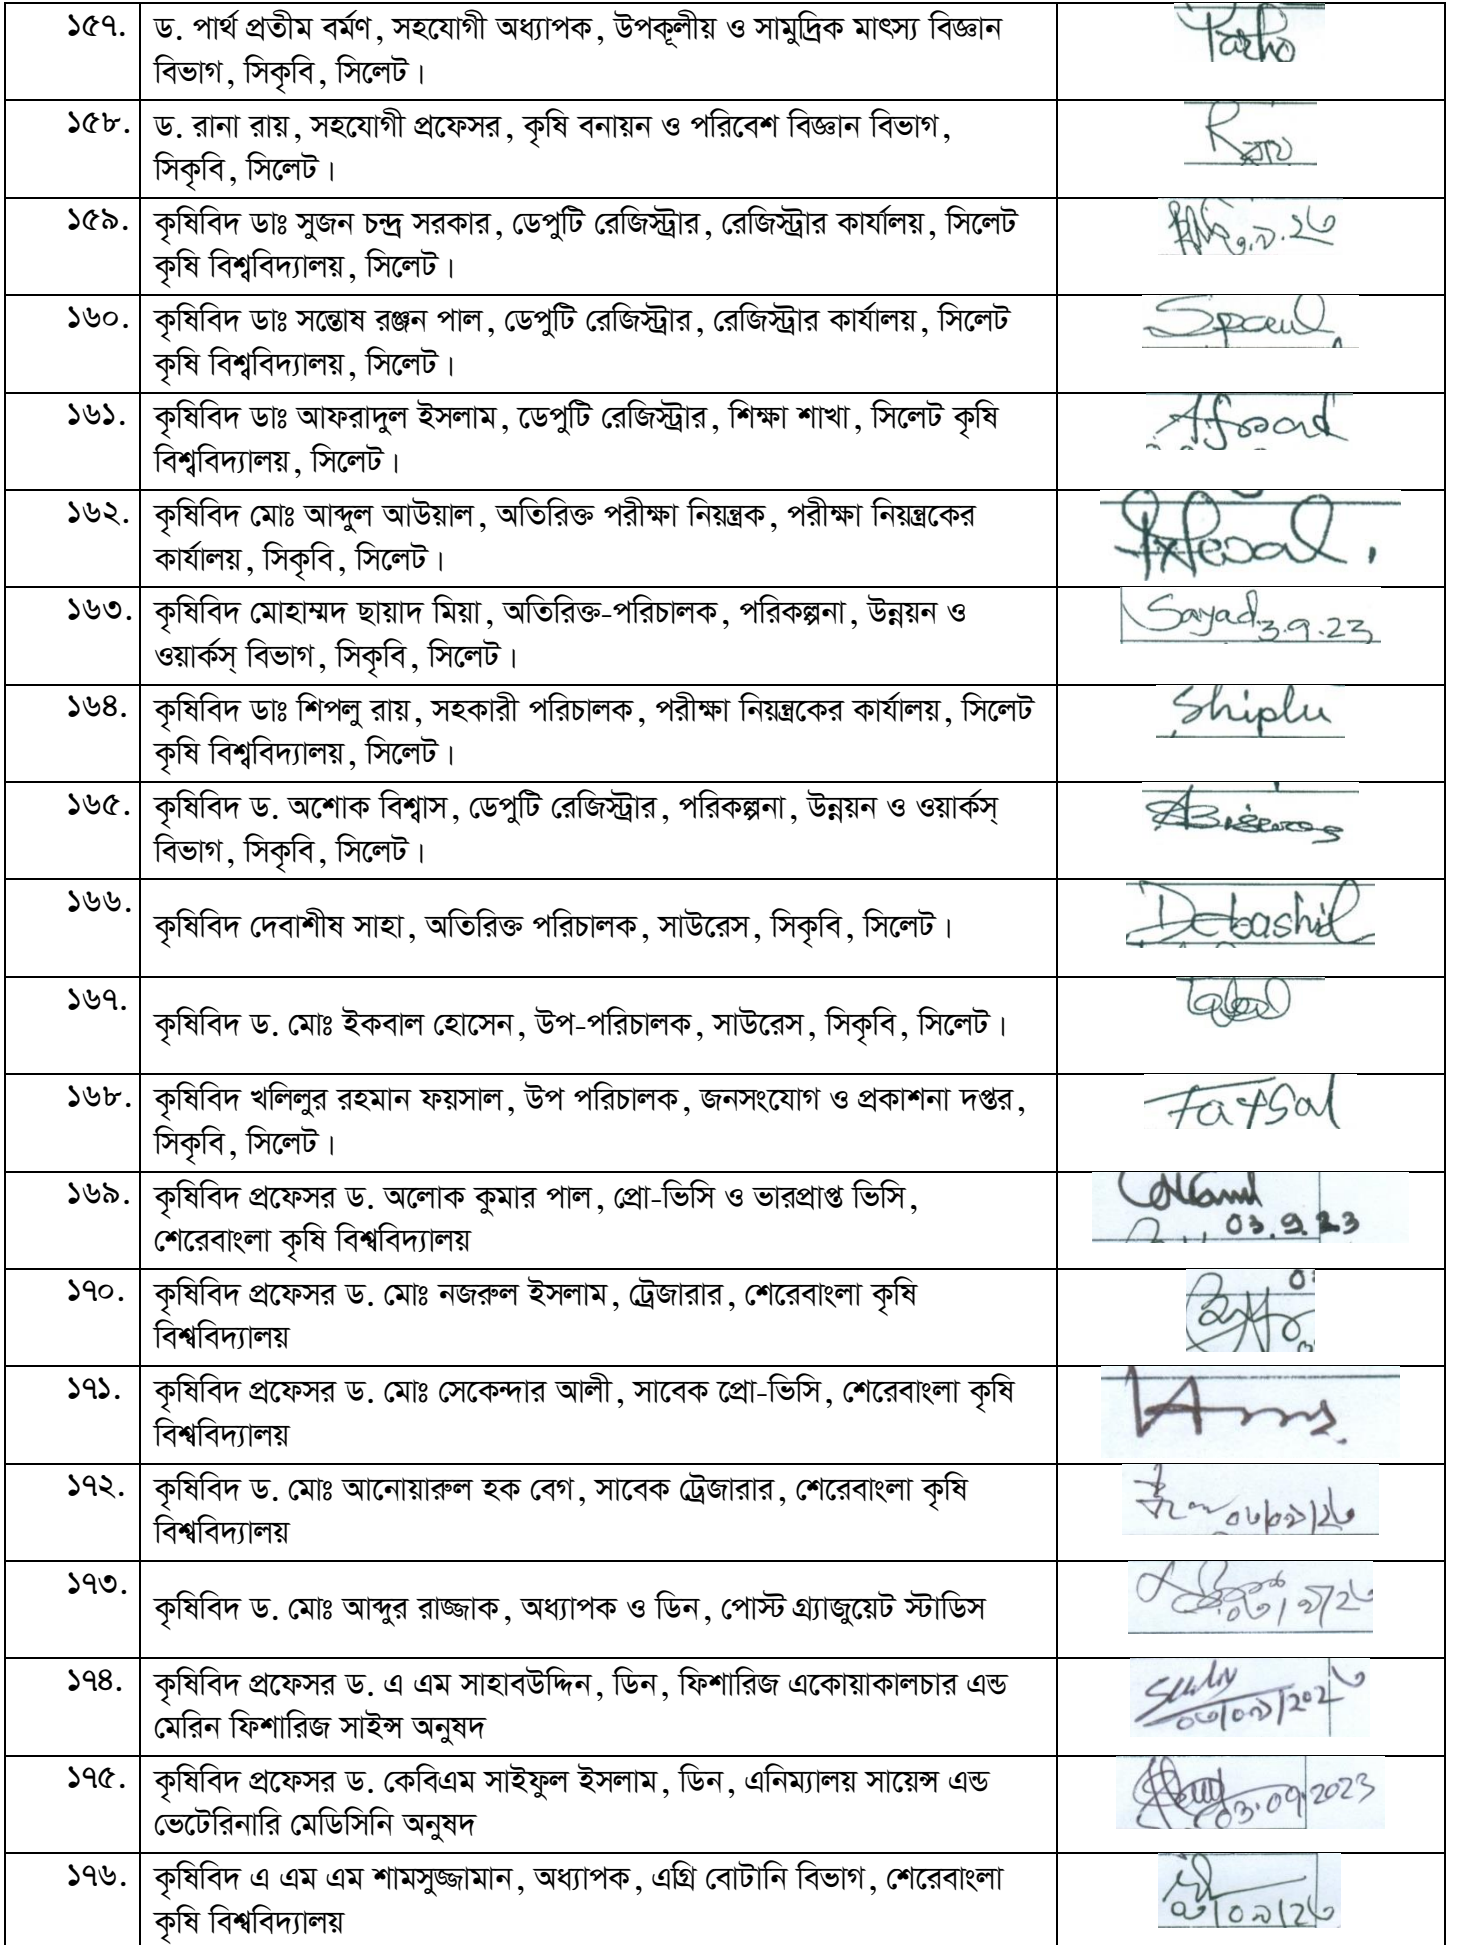 ১৫৭. ড. পার্থ প্রতীম বর্মণ, সহযোগী অধ্যাপক, উপকূলীয় ও সামুদ্রিক মাৎস্য বিজ্ঞান
বিভাগ, সিকৃবি, সিলেট।
Partho
১৫৮. ড. রানা রায়, সহযোগী প্রফেসর, কৃষি বনায়ন ও পরিবেশ বিজ্ঞান বিভাগ,
সিকৃবি, সিলেট।
১৫৯. কৃষিবিদ ডাঃ সুজন চন্দ্র সরকার, ডেপুটি রেজিস্ট্রার, রেজিস্ট্রার কার্যালয়, সিলেট
কৃষি বিশ্ববিদ্যালয়, সিলেট।
৩.৯.২৩
১৬০. কৃষিবিদ ডাঃ সন্তোষ রঞ্জন পাল, ডেপুটি রেজিস্ট্রার, রেজিস্ট্রার কার্যালয়, সিলেট
কৃষি বিশ্ববিদ্যালয়, সিলেট।
Spaul
১৬১. কৃষিবিদ ডাঃ আফরাদুল ইসলাম, ডেপুটি রেজিস্ট্রার, শিক্ষা শাখা, সিলেট কৃষি
বিশ্ববিদ্যালয়, সিলেট।
Afroad
১৬২. কৃষিবিদ মোঃ আব্দুল আউয়াল, অতিরিক্ত পরীক্ষা নিয়ন্ত্রক, পরীক্ষা নিয়ন্ত্রকের
কার্যালয়, সিকৃবি, সিলেট।
১৬৩. কৃষিবিদ মোহাম্মদ ছায়াদ মিয়া, অতিরিক্ত-পরিচালক, পরিকল্পনা, উন্নয়ন ও
ওয়ার্কস্ বিভাগ, সিকৃবি, সিলেট।
Sayad 3.9.23
১৬৪. কৃষিবিদ ডাঃ শিপলু রায়, সহকারী পরিচালক, পরীক্ষা নিয়ন্ত্রকের কার্যালয়, সিলেট
কৃষি বিশ্ববিদ্যালয়, সিলেট।
Shiplu
১৬৫. কৃষিবিদ ড. অশোক বিশ্বাস, ডেপুটি রেজিস্ট্রার, পরিকল্পনা, উন্নয়ন ও ওয়ার্কস্
বিভাগ, সিকৃবি, সিলেট।
ABiswas
১৬৬. কৃষিবিদ দেবাশীষ সাহা, অতিরিক্ত পরিচালক, সাউরেস, সিকৃবি, সিলেট।
Debashis
১৬৭. কৃষিবিদ ড. মোঃ ইকবাল হোসেন, উপ-পরিচালক, সাউরেস, সিকৃবি, সিলেট।
১৬৮. কৃষিবিদ খলিলুর রহমান ফয়সাল, উপ পরিচালক, জনসংযোগ ও প্রকাশনা দপ্তর,
সিকৃবি, সিলেট।
Faysal
১৬৯. কৃষিবিদ প্রফেসর ড. অলোক কুমার পাল, প্রো-ভিসি ও ভারপ্রাপ্ত ভিসি,
শেরেবাংলা কৃষি বিশ্ববিদ্যালয়
03.9.23
১৭০. কৃষিবিদ প্রফেসর ড. মোঃ নজরুল ইসলাম, ট্রেজারার, শেরেবাংলা কৃষি
বিশ্ববিদ্যালয়
১৭১. কৃষিবিদ প্রফেসর ড. মোঃ সেকেন্দার আলী, সাবেক প্রো-ভিসি, শেরেবাংলা কৃষি
বিশ্ববিদ্যালয়
১৭২. কৃষিবিদ ড. মোঃ আনোয়ারুল হক বেগ, সাবেক ট্রেজারার, শেরেবাংলা কৃষি
বিশ্ববিদ্যালয়
০৩/০৯/২৩
১৭৩. কৃষিবিদ ড. মোঃ আব্দুর রাজ্জাক, অধ্যাপক ও ডিন, পোস্ট গ্র্যাজুয়েট স্টাডিস
১৭৪. কৃষিবিদ প্রফেসর ড. এ এম সাহাবউদ্দিন, ডিন, ফিশারিজ একোয়াকালচার এন্ড
মেরিন ফিশারিজ সাইন্স অনুষদ
০৩/০৯/২০২৩
১৭৫. কৃষিবিদ প্রফেসর ড. কেবিএম সাইফুল ইসলাম, ডিন, এনিম্যালয় সায়েন্স এন্ড
ভেটেরিনারি মেডিসিনি অনুষদ
03.09.2023
১৭৬. কৃষিবিদ এ এম এম শামসুজ্জামান, অধ্যাপক, এগ্রি বোটানি বিভাগ, শেরেবাংলা
কৃষি বিশ্ববিদ্যালয়
৩/০৯/২৩